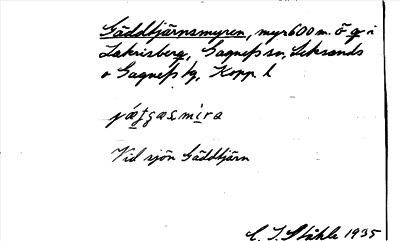 Gäddtjärnsmyren, myr 600 m. ö g i
Lakrisberg, Gagnefs sn, Leksands
o Gagnefs tg, Kopp. l
Vid sjön Gäddtjärn
C. I. Ståhle 1935